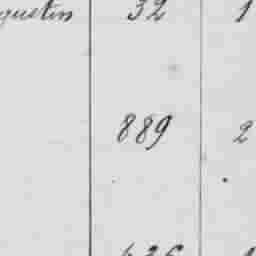 gustin 32 1
889 2